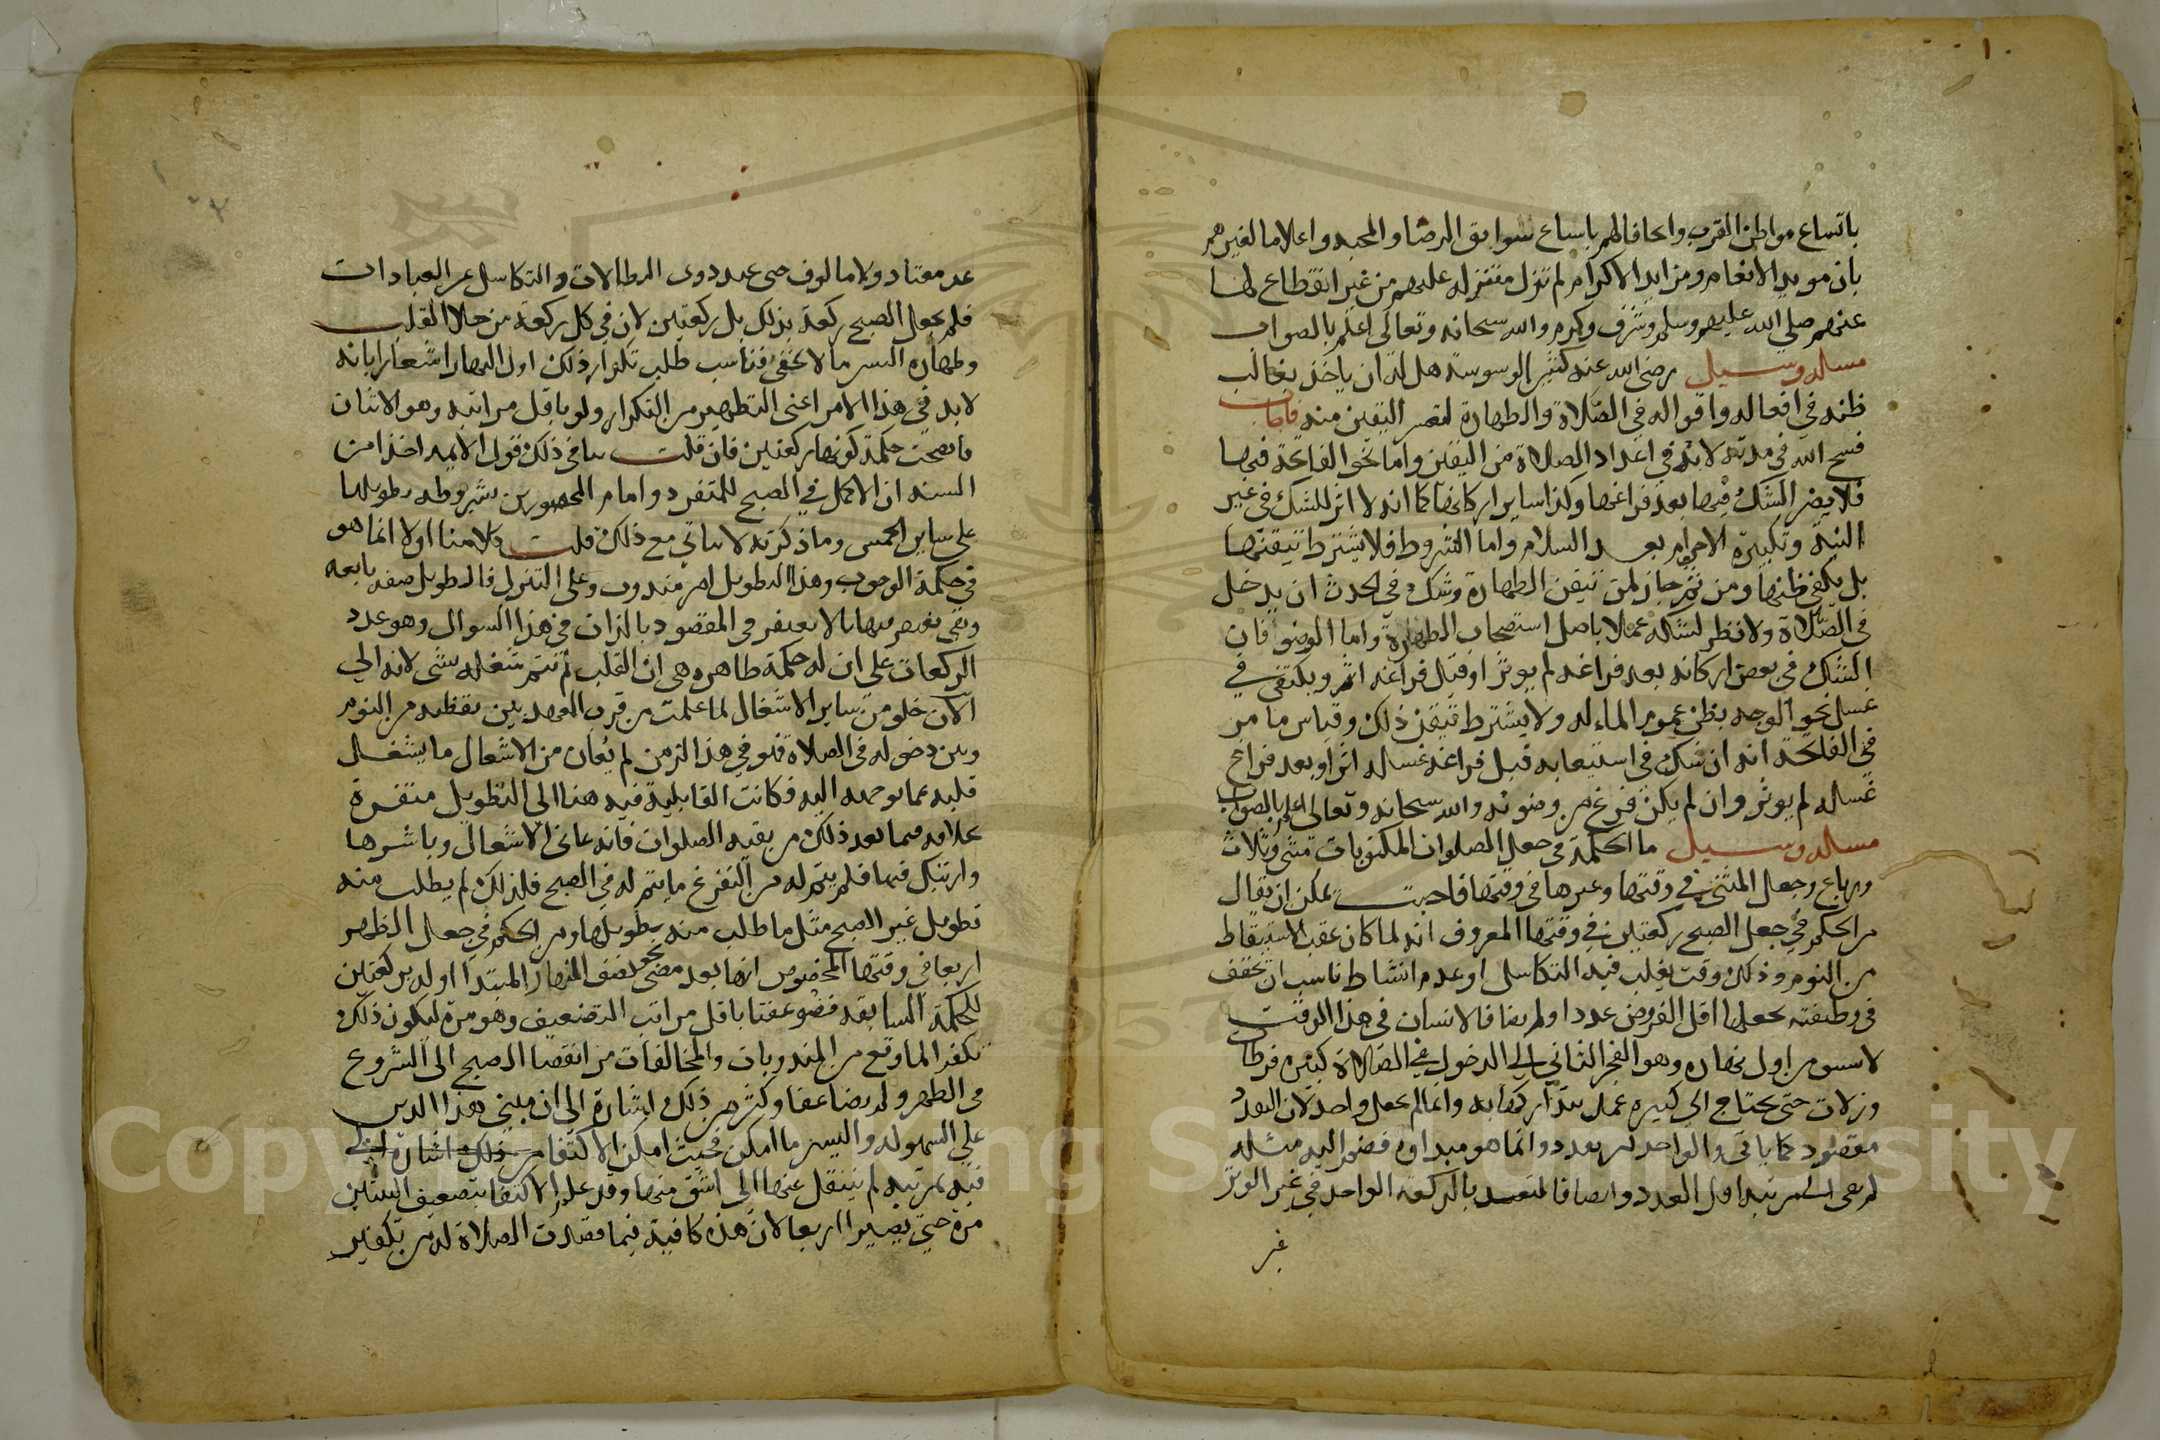 باتساع مواطن القرب واتحافا لهم باساع سوابق الرضا والمحبه واعلاما لغيرهم
بان مويد الانعام ومزايد الاكرام لم تزل متنزله عليهم من غير انقطاع لها
عنهم صلي الله عليهم وسلم وشرف وكرم والله سبحانه وتعالى اعلم بالصواب
مساله وسيل رضى الله عنه كثير الوسوسة هل له ان ياخذ بغالب
ظنه في افعاله واقواله في الصلاة والطهارة لتعسر اليقين منه فاجاب
فسح الله في مدته لابد في اعداد الصلاة من اليقين واما نحو الفاتحة فيها
فلا يضر الشك فيها بعد فراغها وكذا ساير اركانها كما انه لا اثر للشك في غير
النية وتكبيرة الاحرام بعد السلام واما الشروط فلا يشترط تيقنها
بل يكفي ظنها ومن ثم جاز لمن تيقن الطهارة وشك في الحدث ان يدخل
في الصلاة ولا نظر لشكه عملا باصل استصحاب الطهارة واما الوضوء فان
الشك في بعض اركانه بعد فراغه لم يوثر او قبل فراغه اثر ويكتفى في
غسل نحو الوجه بظن عموم الماء له ولا يشترط تيقن ذلك وقياس ما مر
في الفاتحة انه ان شك في استيعابه قبل فراغه غساله اثر او بعد فراغ
غساله لم يوثر وان لم يكن فرغ من وضوئه والله سبحانه وتعالى اعلم بالصواب
مساله وسيل ما الحكمة في جعل الصلوات المكتوبات مثنى وثلاث
ورباع وجعل المثنى في وقتها وغيرها في وقتها فاجبت يمكن ان يقال
من الحكم في جعل الصبح ركعتين في وقتها المعروف انه لما كان عقب الاستيقاظ
من النوم وذلك وقت يغلب فيه التكاسل او عدم انشاط ناسب ان تخفف
في وظيفته بجعلها اقل الفروض عددا ولم يضا فالانسان في هذا الوقت
لا من اول نهاره وهو الفجر الثاني الي الدخول في الصلاة كبير فرطات
وزلات حتى يحتاج الي كبيره عمل يتدارك به وانما لم يجعل واحد لان العدد
مقصود كما ياتى والواحد ليس بعدد وانما هو مبداوه فضم اليه مثله
لترقى الي مرتبه اول العدد وايضا فالتعبد بالركعة الواحد في غير الوتر
غير
عد معتاد ولا مالوف حى عند دوى البطالات والتكاسل عن العبادات
فلم يجعل الصبح ركعة بذلك بل ركعتين لان في كل ركعة من جلا القلب
وطهاره السر ما لا يخفى فناسب طلب تكرار ذلك اول النهار اشعارا بانه
لابد في هذا الامر اعنى التطهير من التكرار ولو باقل مراتبه وهو الاثنان
فاتضحت حكمة كونها ركعتين فان قلت ينافى ذلك قول الايمه اخذا من
السنه ان الاكمل في الصبح للمنفرد وامام المحصورين بشروطه تطويلها
على ساير الخمس وما ذكرته لا ياتي مع ذلك قلت كلامنا اولا انما هو
في حكمة الوجوب وهذا التطويل امر مندوب وعلى التنزل فالتطويل صفه تابعه
في المقصود بالذات في هذا السوال وهو عدد
الركعات على ان له حكمة ظاهره هي ان القلب لم تتم شغله بشى لانه الي
الآن خلو من ساير الاشغال لما علمت من قرب العهد بين يقظته من النوم
وبين دخوله في الصلاة فهو في هذا الزمن لم يعان من الاشغال ما يشغل
قلبه عما توجه اليه فكانت القابلية فيه هنا الى التطويل متقررة
بخلافه فيما بعد ذلك من بقيه الصلوات فانه عانى الاشغال وباشرها
وارتبك فيها فلم يتم له من التفرغ ما يتم له في الصبح فلذلك لم يطلب منه
تطويل غير الصبح مثل ما طلب منه بطويلها ومن الحكم في جعل الظهر
اربعا في وقتها المخصوص انها بعد مضى نحو نصف النهار المبتدا اوله بركعتين
للحكمة السابقه فضوعفتا باقل مراتب التضعيف وهو مرة ليكون ذلك
تكفيرا لما وقع من المندوبات والمخالفات من انقضا الصبح الى الشروع
في الظهر ولم يضاعفا وكثر من ذلك اشارة الى ان مبني هذا الدين
علي السهوله واليسر ما امكن فحيث امكن الاكتفا من ذلك اشارة
فيه بمرتبه لم ينتقل عنها الي اشق منها وقد علم الاكتفا بتضعيف الثنتين
مرة حتى يصيرا اربعا لان هذه كافية فيما قصدت الصلاة له من تكفير